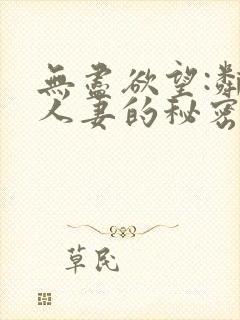 無盡欲望:鄰
人妻的秘密
草民